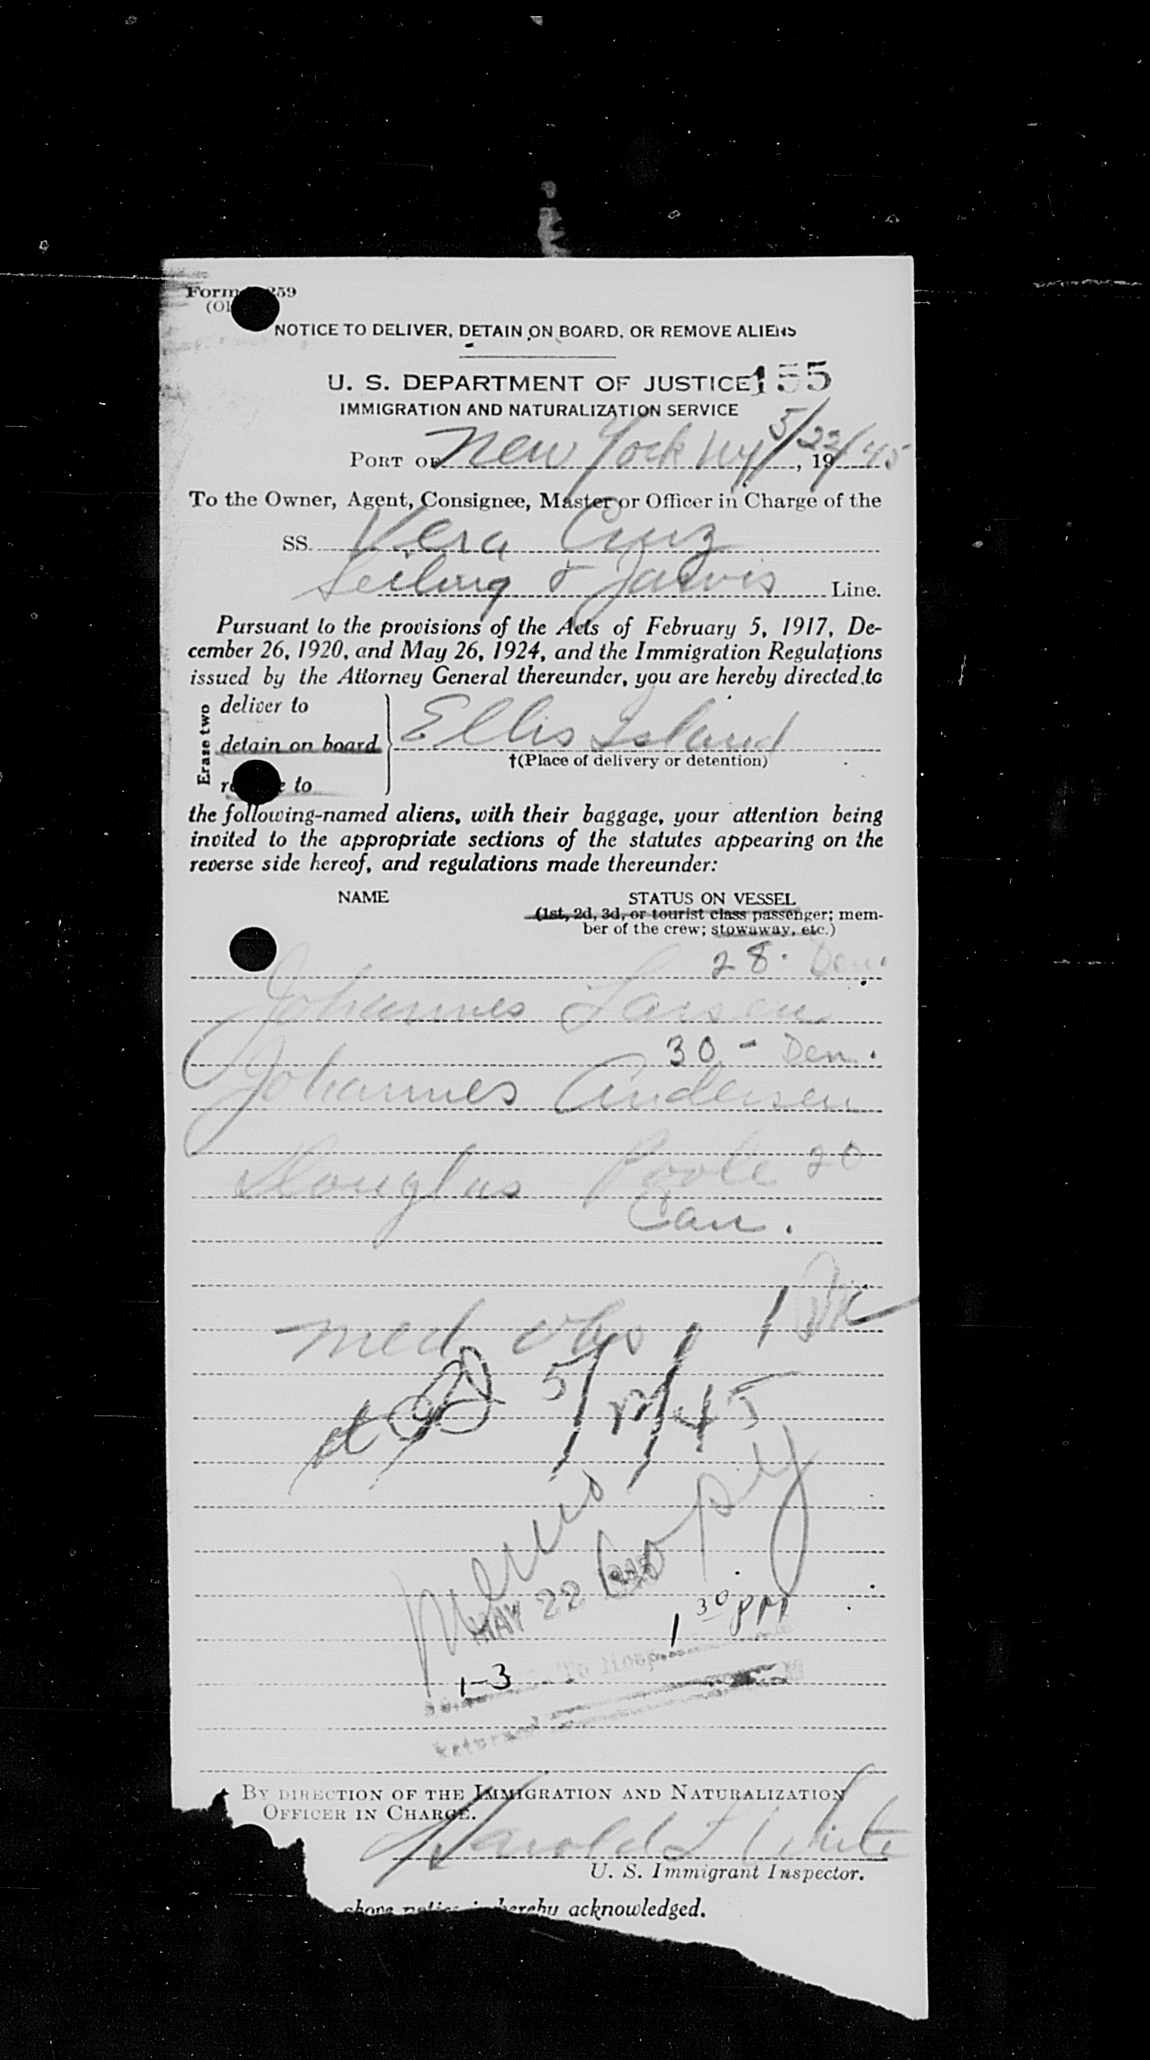 Form 259
NOTICE TO DELIVER, DETAIN ON BOARD, OR REMOVE ALIENS
U. S. DEPARTMENT OF JUSTICE 155
IMMIGRATION AND NATURALIZATION SERVICE
PORT OF New York NY 5/22/45, 19
To the Owner, Agent, Consignee, Master or Officer in Charge of the
SS. Vera Cruz
Seiling & Jarvis Line.
Pursuant to the provisions of the Acts of February 5, 1917, De-
cember 26, 1920, and May 26, 1924, and the Immigration Regulations
issued by the Attorney General thereunder, you are hereby directed to
Erase two
deliver to
detain on board
to
Ellis Island
†(Place of delivery or detention)
the following-named aliens, with their baggage, your attention being
invited to the appropriate sections of the statutes appearing on the
reverse side hereof, and regulations made thereunder:
NAME STATUS ON VESSEL
(1st, 2d, 3d, or tourist class passenger; mem-
ber of the crew; stowaway, etc.)
28 - Den.
Johannes Larsen
30 - Den.
Johannes Andersen
Douglas Poole 20
Can.
med obs 1
5/22/45
Memo Copy
MAY 22 1945
1 30 PM
1-3 To Hosp.
Returned
BY DIRECTION OF THE IMMIGRATION AND NATURALIZATION
OFFICER IN CHARGE.
Harold L White
U. S. Immigrant Inspector.
above notice is hereby acknowledged.